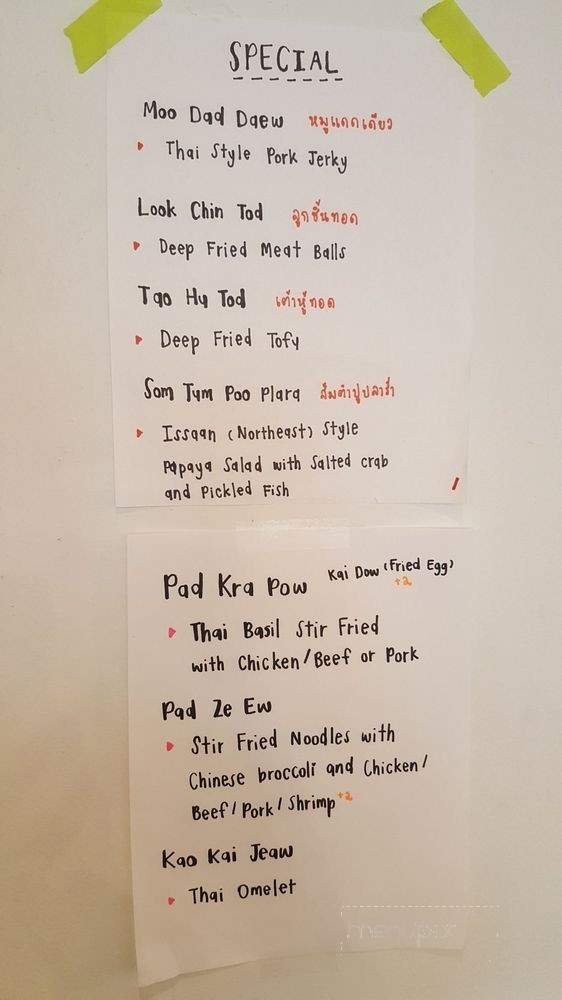 SPECIAL
Moo Dad Daew หมูแดดเดียว
Thai Style Pork Jerky
Look Chin Tod ลูกชิ้นทอด
Deep Fried Meat Balls
Tao Hu Tod เต้าหู้ทอด
Deep Fried Tofy
Som Tum Poo Plara ส้มตำปูปลาร้า
Issaan (Northeast) Style
Papaya Salad with Salted crab
and Pickled Fish
Pad Kra Pow Kai Dow (Fried Egg)
+2
Thai Basil Stir Fried
with Chicken/Beef or Pork
Pad Ze Ew
Stir Fried Noodles with
Chinese broccoli and Chicken/
Beef/Pork/Shrimp +2
Kao Kai Jeaw
Thai Omelet
menupix